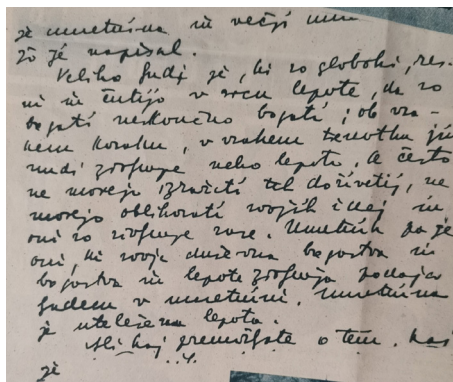 je umetnina in večji
to je napisal.
Veliko ljudi je, ki so globoki, res-
ni in čutijo v srcu lepote, da so
bogati neskončno bogati; ob vsa-
kem koraku, v vsakem trenutku jim
nudi življenje neko lepoto, a često
ne morejo izraziti teh doživetij, ne
morejo oblikovati svojih idej in
oni so življenje zase. Umetnik pa je
oni, ki svoja duševna bogastva in
bogastva in lepote življenja podaja
ljudem v umetnini. Umetnina
je utelešena lepota.
Ali kaj premišljate o tem, kaj
je